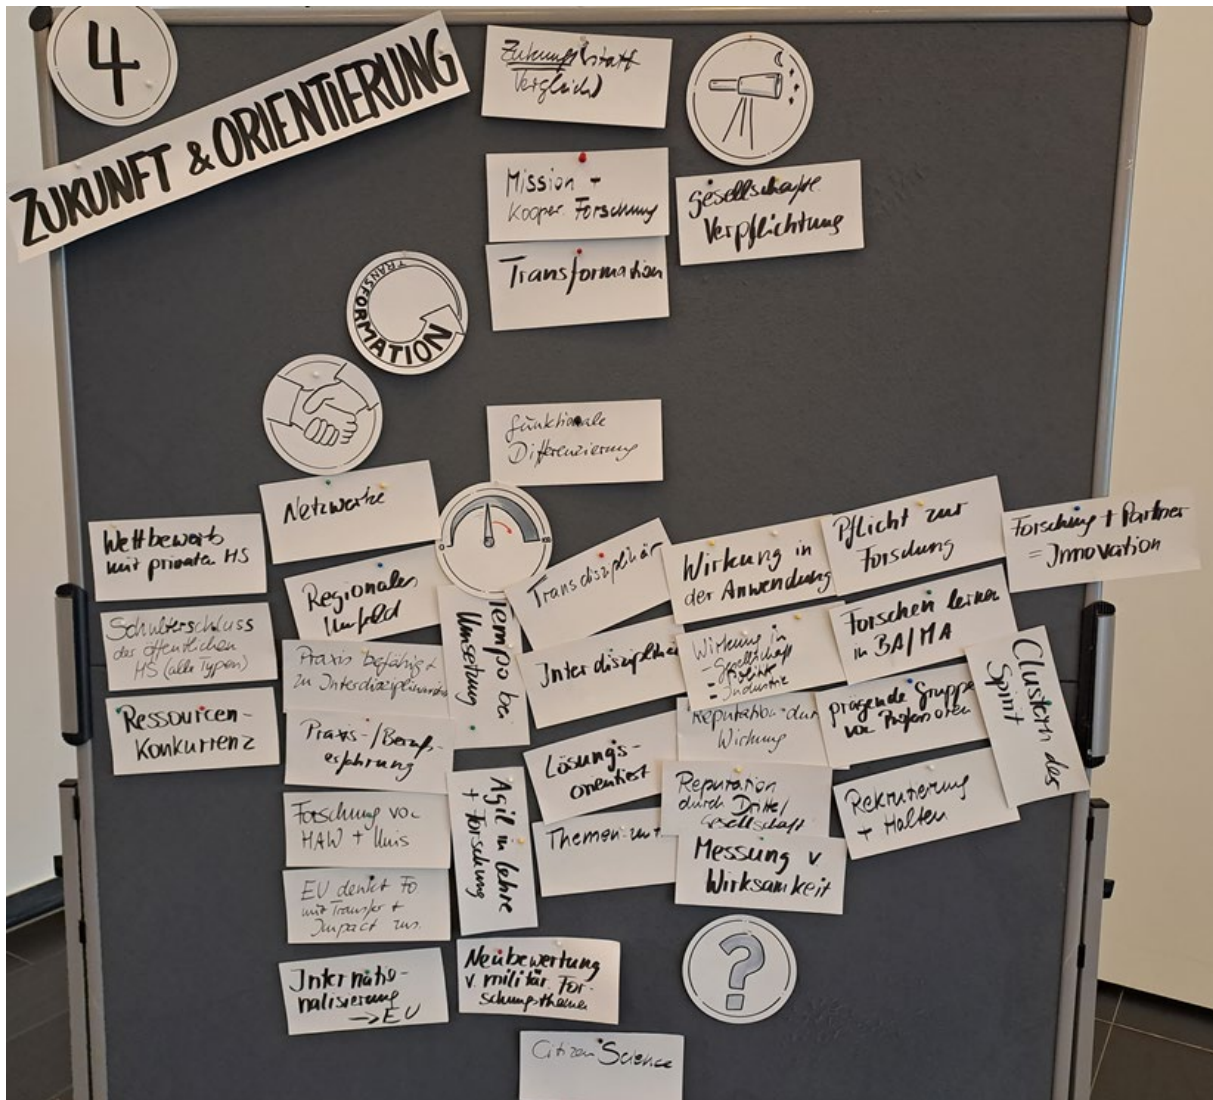 4
ZUKUNFT & ORIENTIERUNG
Zukunft (statt
Vergleich)
Mission +
Kooper. Forschung
gesellschaftl.
Verpflichtung
Transformation
TRANSFORMATION
TRANSFORMATION
funktionale
Differenzierung
Netzwerke
Wettbewerb
mit privaten HS
Schulterschluss
der öffentlichen
HS (alle Typen)
Ressourcen-
Konkurrenz
Regionales
Umfeld
Praxis befähigt
zu Interdisziplinarität
Praxis-/Berufs-
erfahrung
Forschung von
HAW + Unis
EU denkt Fo
mit Transfer +
Impact zus.
Internatio-
nalisierung
→ EU
0
100
Tempo bei
Umsetzung
Agil in Lehre
+ Forschung
Neubewertung
v. militär. For-
schungsthemen
Transdisziplinär
Interdisziplinär
Lösungs-
orientiert
Themen-
Wirkung in
der Anwendung
Wirkung in
- Gesellschaft
- Politik
- Industrie
Reputation durch
Wirkung
Reputation
durch Dritte/
Gesellschaft
Messung v
Wirksamkeit
?
Pflicht zur
Forschung
Forschen lernen
in BA/MA
prägende Gruppe
von Professoren
Rekrutierung
+ Halten
Forschung + Partner
= Innovation
Clustern des
Spirit
Citizen Science